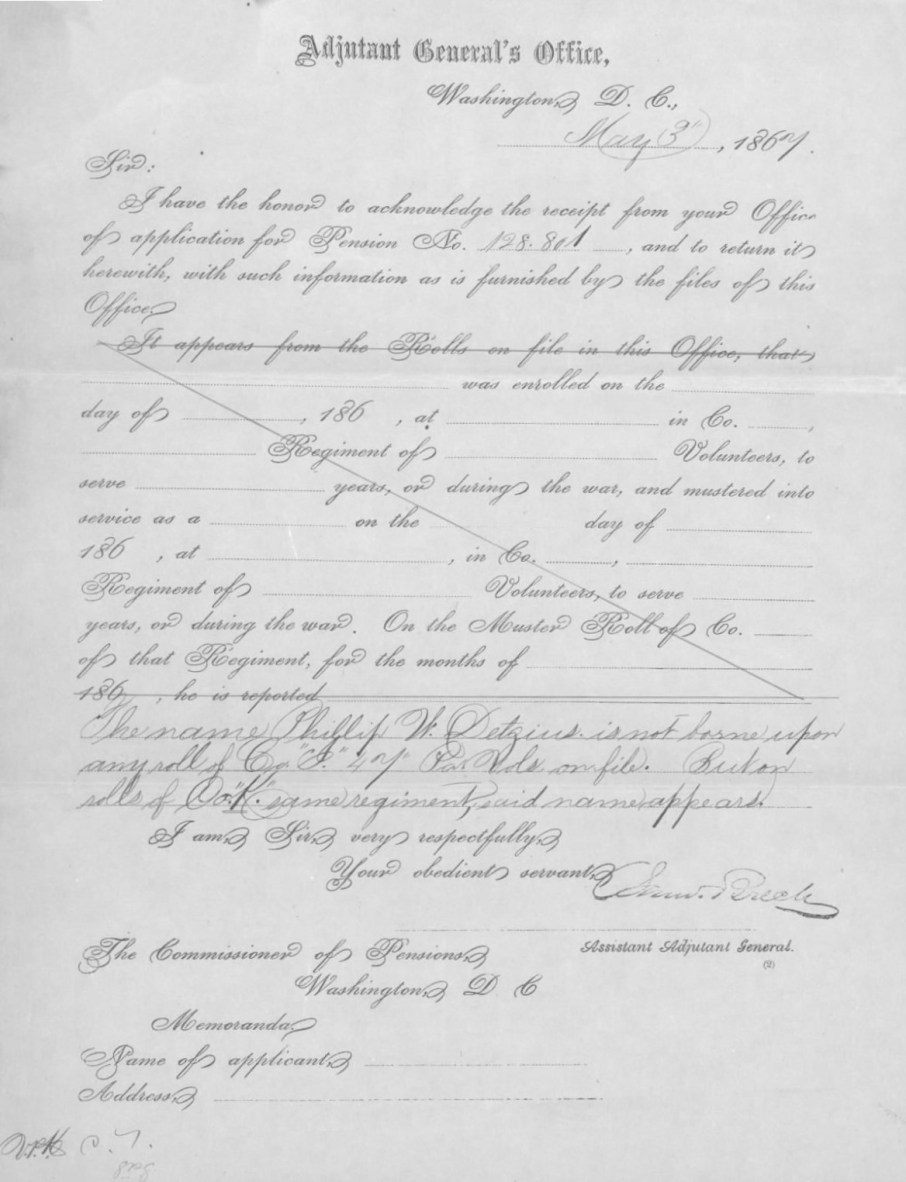 Adjutant General's Office,
Washington, D. C.,
May 3", 1867.
Sir:
I have the honor to acknowledge the receipt from your Office
of application for Pension No. 128.801, and to return it
herewith, with such information as is furnished by the files of this
Office.
It appears from the Rolls on file in this Office, that
was enrolled on the
day of , 186 , at in Co. ,
Regiment of Volunteers, to
serve years, or during the war, and mustered into
service as a on the day of
186 , at , in Co. ,
Regiment of Volunteers, to serve
years, or during the war. On the Muster Roll of Co.
of that Regiment, for the months of
186 , he is reported
The name Phillip W. Detzius. is not borne upon
any roll of Co "I." 47" Pa. Vols on file. But on
rolls of Co. "K." same regiment, said name appears.
I am, Sir, very respectfully,
Your obedient servant,
Saml. Breck
Assistant Adjutant General.
(2)
The Commissioner of Pensions,
Washington, D C
Memoranda,
Name of applicant,
Address,